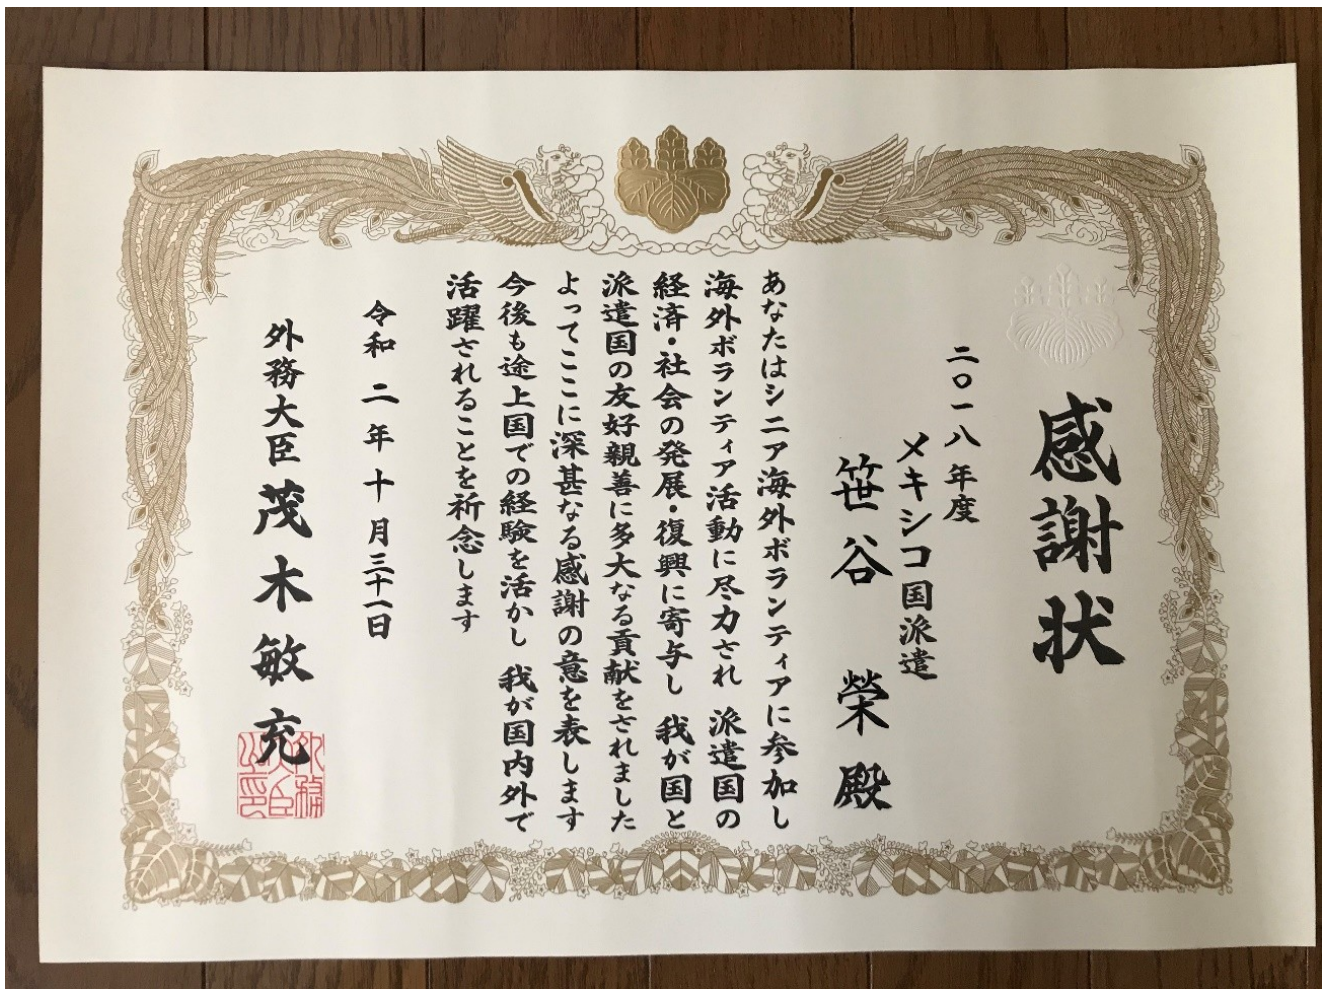 感謝状
二〇一八年度
メキシコ国派遣
笹谷 榮 殿
あなたはシニア海外ボランティアに参加し
海外ボランティア活動に尽力され 派遣国の
経済・社会の発展・復興に寄与し 我が国と
派遣国の友好親善に多大なる貢献をされました
よってここに深甚なる感謝の意を表します
今後も途上国での経験を活かし 我が国内外で
活躍されることを祈念します
令和 二 年 十 月 三十一日
外務大臣 茂木敏充
外務
大臣
之印